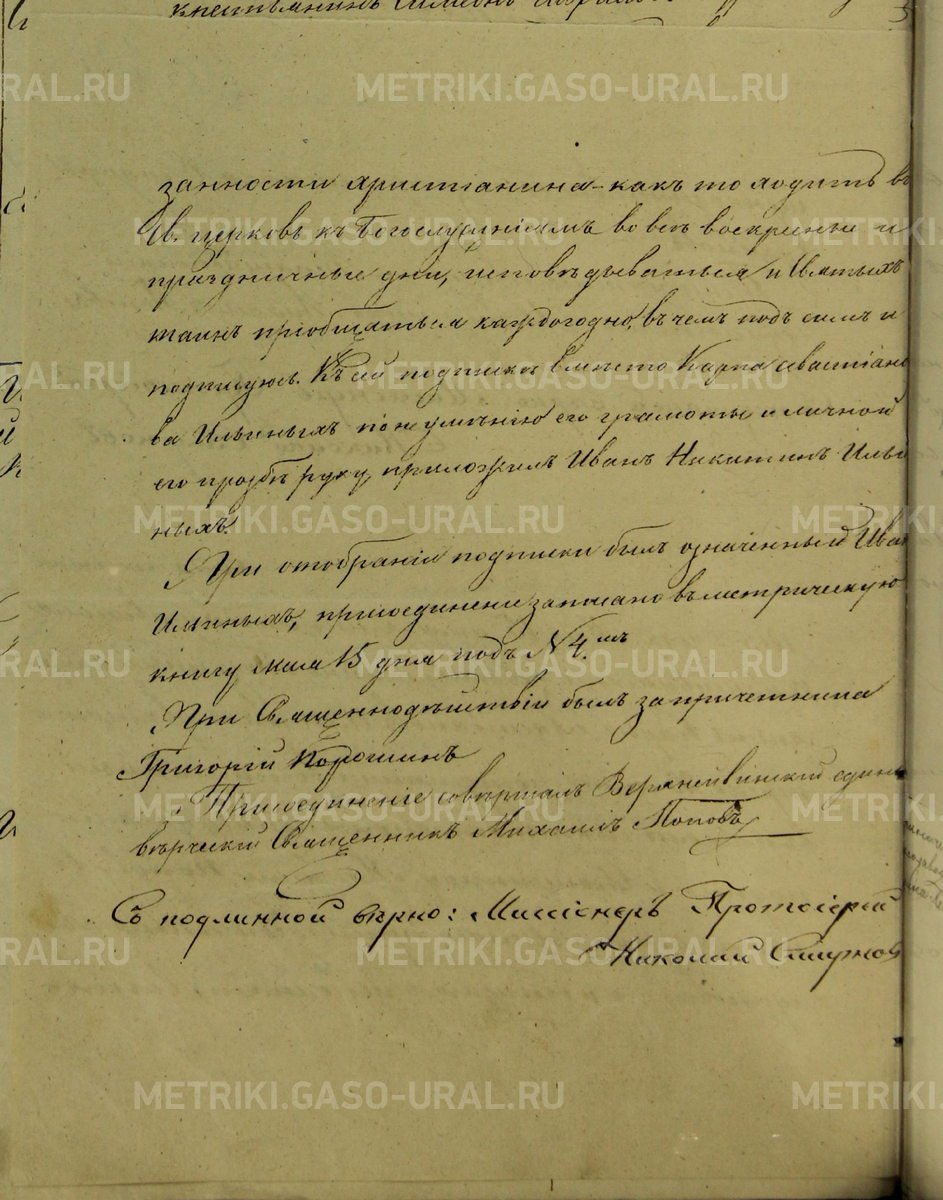 занности христианина – какъ то ходить въ
Св. церковь къ Богослуженіямъ во все воскресные и
праздничные дни, исповѣдываться и Святыхъ
таинъ пріобщаться каждогодно, въ чемъ подъ симъ и
подписуюсь. Къ сей подпискѣ вмѣсто Карпа Савастіано
ва Ильиныхъ по неумѣнію его грамоты и личной
его прозбѣ руку приложилъ Иванъ Никитинъ Ильи
ныхъ.
При отобраніи подписки былъ означенный Иванъ
Ильиныхъ, присоединеніе записано въ метрическую
книгу мая 15 дня подъ № 4.мъ
При Священнодѣйствіи былъ за причетника
Григорій Хорошинъ
Присоединеніе совершалъ Верхнейвинскій едино
вѣрческій Священникъ Михаилъ Поповъ
Съ подлинной вѣрно: Миссіонеръ Протоіерей
Николай Смирновъ
METRIKI.GASO-URAL.RU